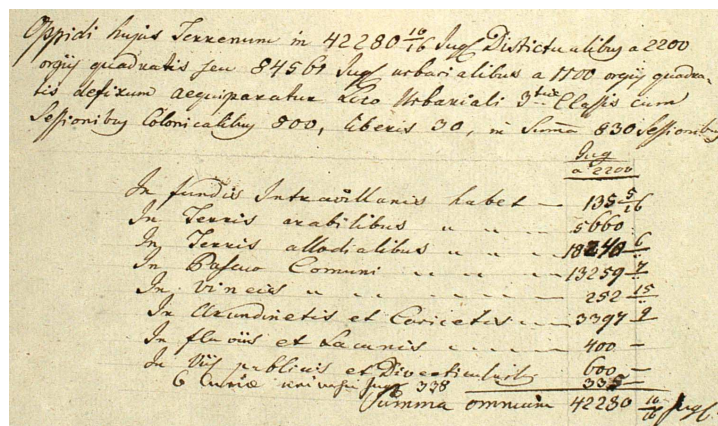 Oppidi hujus Terrenum in 42280 10/16 Jug Districtualibus a 2200
orgiis quadratis seu 84561 Jug urbarialibus a 1100 orgiis quadra-
tis defixum aequiparatur Loco Urbariali 3tiae Classis cum
Sessionibus Colonicalibus 800, liberis 30, in Summa 830 Sessionibus
Jug
a 2200
In fundis Intravillanis habet — 135 5/16
In Terris arabilibus " " — 5660
In Terris allodialibus " " — 18240 6
In Pascuo Comuni " " " — 13259 7
In Vineis " " " " — 252 15
In Arundinetis et Caricetis — 3397 9
In fluviis et Lacunis " — 400 —
In Viis publicis et Diverticulis 600 —
6 Curiae Jug 338 335 —
Summa omnium 42280 10/16 Jug